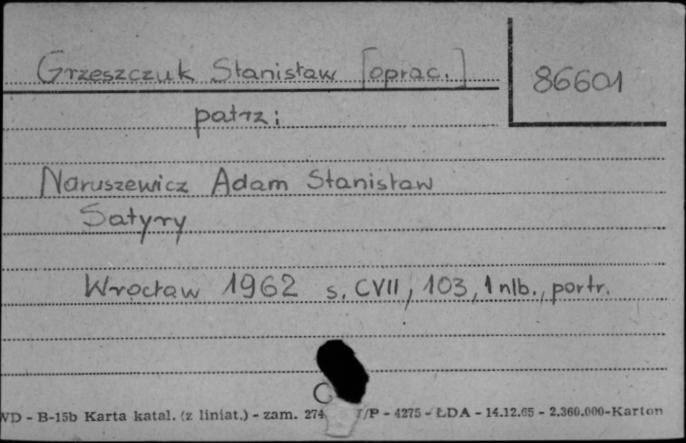 Grzeszczuk Stanisław [oprac.]
86601
patrz:
Naruszewicz Adam Stanisław
Satyry
Wrocław 1962 s. CVII, 103, 1 nlb., portr.
WD - B-15b Karta katal. (z liniat.) - zam. 274 /P - 4275 - ŁDA - 14.12.65 - 2.360.000-Karton